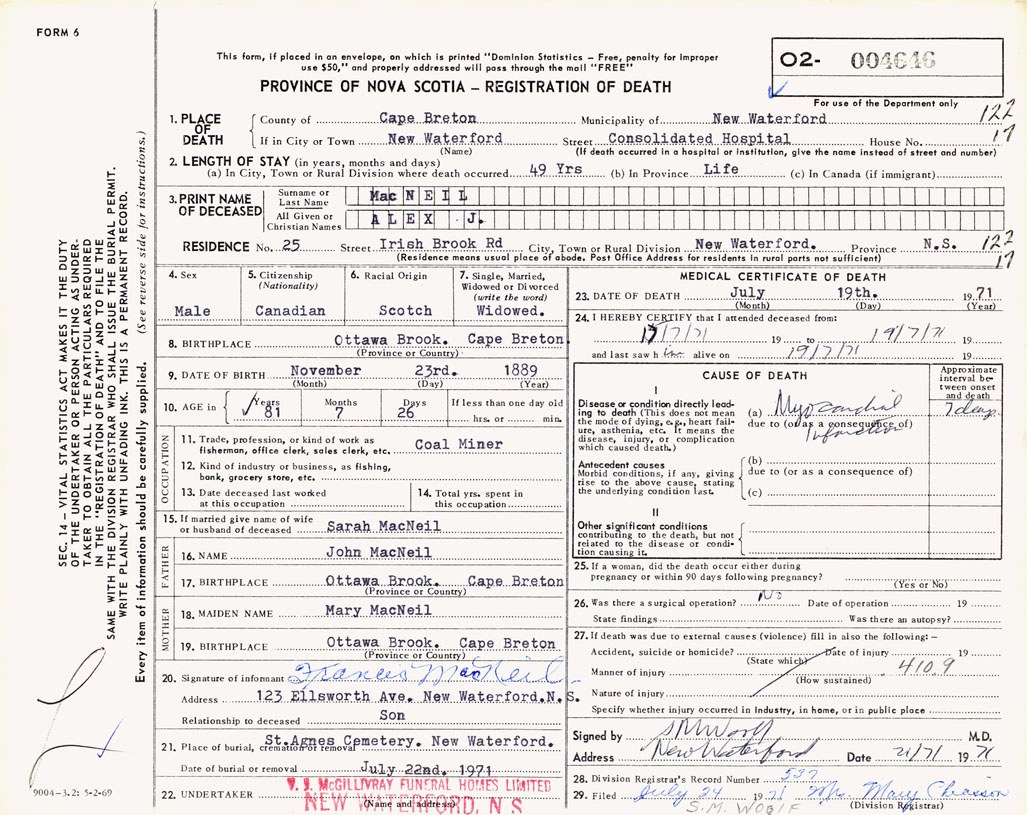 FORM 6
This form, if placed in an envelope, on which is printed "Dominion Statistics – Free, penalty for improper
use $50," and properly addressed will pass through the mail "FREE"
O2- 004646
PROVINCE OF NOVA SCOTIA – REGISTRATION OF DEATH
For use of the Department only
1. PLACE OF DEATH
County of Cape Breton Municipality of New Waterford 122
If in City or Town New Waterford Street Consolidated Hospital House No. 17
(Name) (If death occurred in a hospital or institution, give the name instead of street and number)
2. LENGTH OF STAY (in years, months and days)
(a) In City, Town or Rural Division where death occurred 49 Yrs (b) In Province Life (c) In Canada (if immigrant)
3. PRINT NAME OF DECEASED
Surname or Last Name MacNEIL
All Given or Christian Names ALEX J.
RESIDENCE No. 25 Street Irish Brook Rd City, Town or Rural Division New Waterford. Province N.S. 122
(Residence means usual place of abode. Post Office Address for residents in rural parts not sufficient) 17
4. Sex
Male
5. Citizenship
(Nationality)
Canadian
6. Racial Origin
Scotch
7. Single, Married,
Widowed or Divorced
(write the word)
Widowed.
8. BIRTHPLACE Ottawa Brook. Cape Breton
(Province or Country)
9. DATE OF BIRTH November 23rd. 1889
(Month) (Day) (Year)
10. AGE in
Years Months Days If less than one day old
81 7 26 hrs. or min.
OCCUPATION
11. Trade, profession, or kind of work as
fisherman, office clerk, sales clerk, etc. Coal Miner
12. Kind of industry or business, as fishing,
bank, grocery store, etc.
13. Date deceased last worked
at this occupation
14. Total yrs. spent in
this occupation
15. If married give name of wife
or husband of deceased Sarah MacNeil
FATHER
16. NAME John MacNeil
17. BIRTHPLACE Ottawa Brook. Cape Breton
(Province or Country)
MOTHER
18. MAIDEN NAME Mary MacNeil
19. BIRTHPLACE Ottawa Brook. Cape Breton
(Province or Country)
20. Signature of informant Francis MacNeil
Address 123 Ellsworth Ave. New Waterford.N.S.
Relationship to deceased Son
21. Place of burial, cremation or removal St.Agnes Cemetery. New Waterford.
Date of burial or removal July 22nd. 1971
22. UNDERTAKER
McGILLIVRAY FUNERAL HOMES LIMITED
NEW WATERFORD, N S
(Name and address)
MEDICAL CERTIFICATE OF DEATH
23. DATE OF DEATH July 19th. 1971
(Month) (Day) (Year)
24. I HEREBY CERTIFY that I attended deceased from:
/7/71 19 to 19/7/71
and last saw him alive on 19/7/71 19
CAUSE OF DEATH
Approximate
interval be-
tween onset
and death
I
Disease or condition directly lead-
ing to death (This does not mean
the mode of dying, e.g., heart fail-
ure, asthenia, etc. It means the
disease, injury, or complication
which caused death.)
(a) Myocardial 7 days
due to (or as a consequence of)
Infarction
Antecedent causes
Morbid conditions, if any, giving
rise to the above cause, stating
the underlying condition last.
(b)
due to (or as a consequence of)
(c)
II
Other significant conditions
contributing to the death, but not
related to the disease or condi-
tion causing it.
25. If a woman, did the death occur either during
pregnancy or within 90 days following pregnancy?
(Yes or No)
26. Was there a surgical operation? No Date of operation 19
State findings Was there an autopsy?
27. If death was due to external causes (violence) fill in also the following: –
Accident, suicide or homicide? Date of injury 19
(State which)
Manner of injury 410.9
(How sustained)
Nature of injury
Specify whether injury occurred in industry, in home, or in public place
Signed by S M Woolf M.D.
Address New Waterford Date 21/7/ 1971
28. Division Registrar's Record Number 537
29. Filed July 24 1971 Mrs. Mary Chiasson
S.M. WOOLF (Division Registrar)
SEC. 14 – VITAL STATISTICS ACT MAKES IT THE DUTY
OF THE UNDERTAKER OR PERSON ACTING AS UNDER-
TAKER TO OBTAIN ALL THE PARTICULARS REQUIRED
IN THE "REGISTRATION OF DEATH" AND TO FILE THE
SAME WITH THE DIVISION REGISTRAR WHO SHALL ISSUE THE BURIAL PERMIT.
WRITE PLAINLY WITH UNFADING INK. THIS IS A PERMANENT RECORD.
Every item of information should be carefully supplied. (See reverse side for instructions.)
9004-3.2: 5-2-69